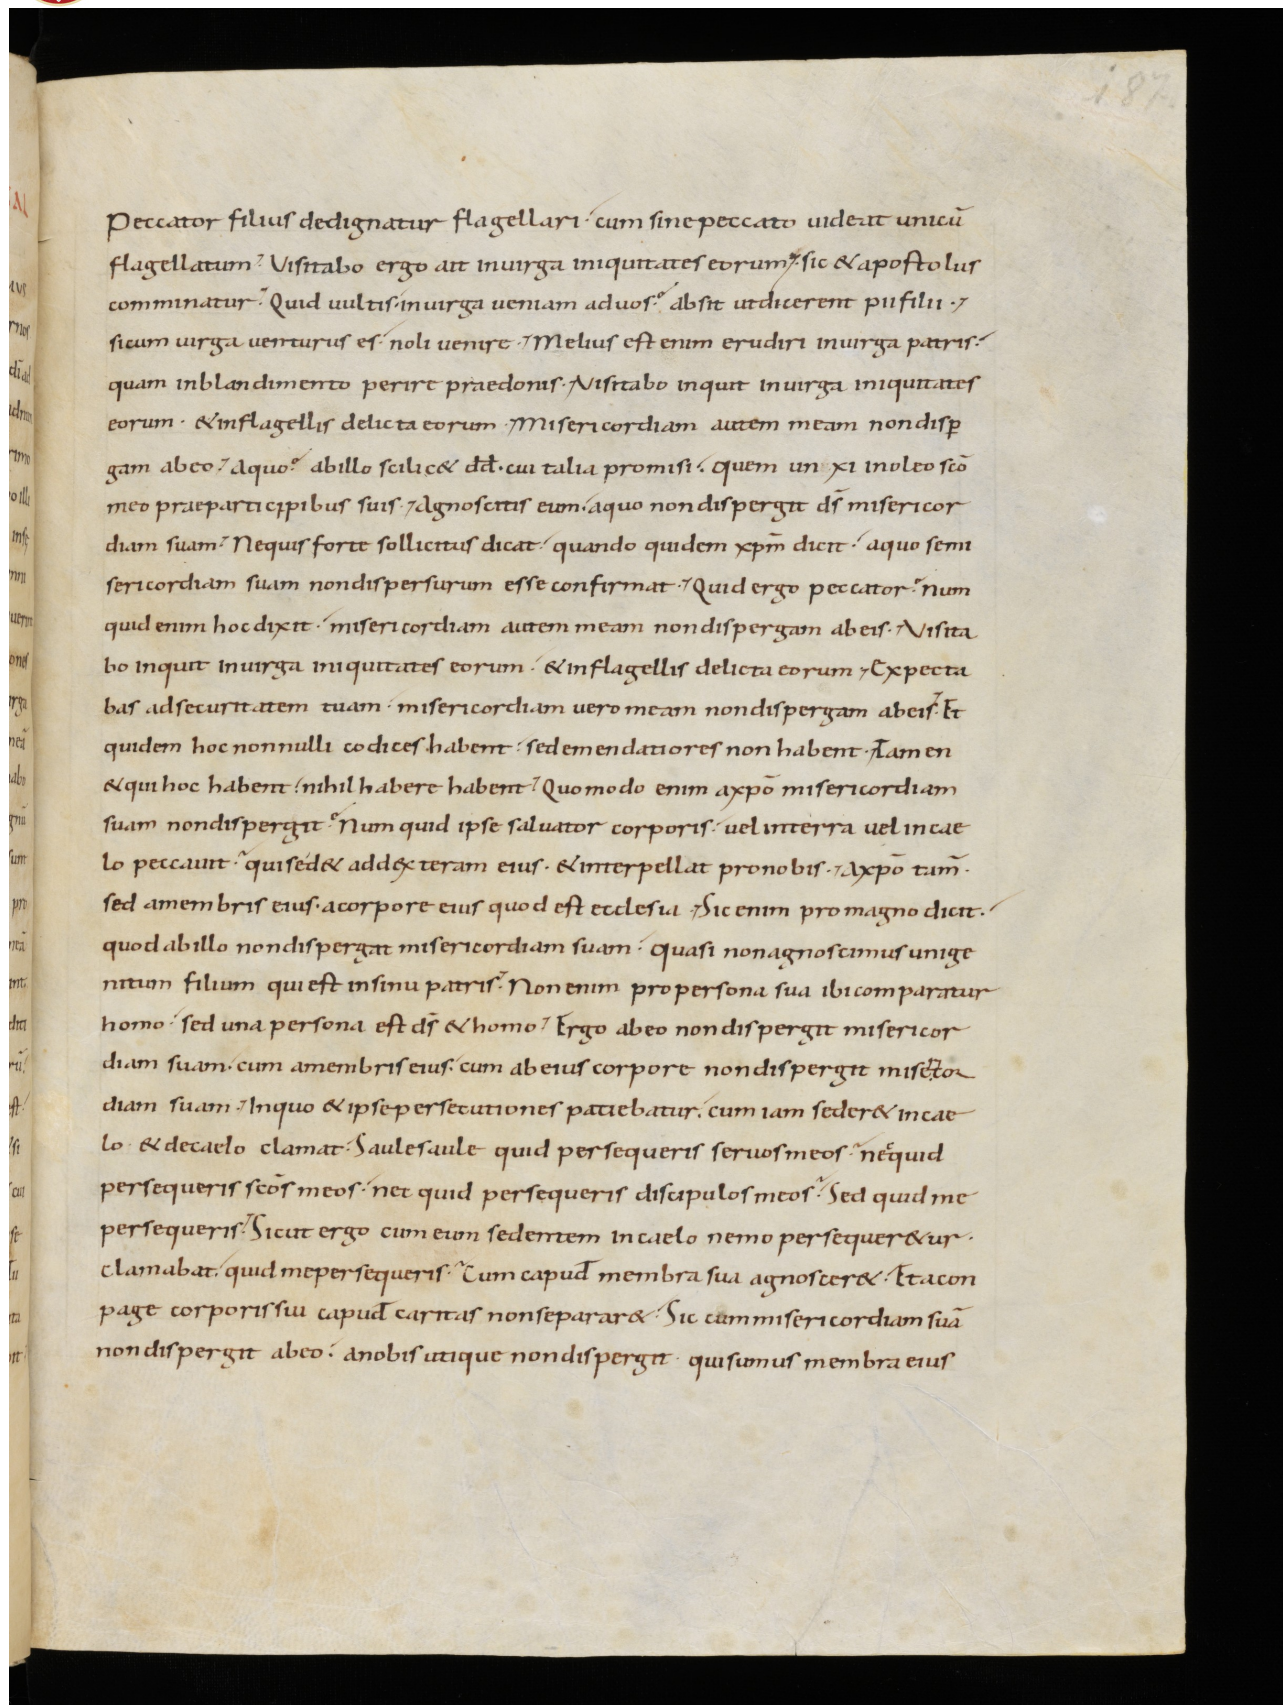 187
Peccator filius dedignatur flagellari · cum sine peccato uideat unicū
flagellatum? Visitabo ergo ait inuirga iniquitates eorum · sic & apostolus
comminatur · Quid uultis · inuirga ueniam aduos? absit utdicerent pii filii ·
sicum uirga uenturus es · noli uenire · Melius est enim erudiri inuirga patris ·
quam inblandimento perire praedonis · Visitabo inquit inuirga iniquitates
eorum · & inflagellis delicta eorum · Misericordiam autem meam non disp
gam abeo? Aquo? abillo scilic& dd̄ · cui talia promisi · quem unxi inoleo scō
meo praeparticipibus suis · Agnoscitis eum · aquo non dispergit ds̄ misericor
diam suam? Nequis forte sollicitus dicat · quando quidem xpm̄ dicit · aquo se mi
sericordiam suam nondispersurum esse confirmat · Quid ergo peccator? num
quid enim hoc dixit · misericordiam autem meam nondispergam abeis · Visita
bo inquit inuirga iniquitates eorum · & inflagellis delicta eorum · Expecta
bas adsecuritatem tuam · misericordiam uero meam nondispergam abeis · Et
quidem hoc nonnulli codices habent · sed emendatiores non habent · Tamen
& qui hoc habent · nihil habere habent? Quomodo enim axpō misericordiam
suam nondispergit? Numquid ipse saluator corporis · uel interra uel incae
lo peccauit · qui sed& addexteram eius · & interpellat pronobis · Axpō tam̄ ·
sed amembris eius · acorpore eius quod est ecclesia · Sic enim pro magno dicit ·
quod abillo nondispergat misericordiam suam · Quasi nonagnoscimus unige
nitum filium qui est insinu patris · Non enim propersona sua ibi comparatur
homo · sed una persona est ds̄ & homo? Ergo abeo non dispergit misericor
diam suam · cum amembris eius · cum abeius corpore nondispergit misericor
diam suam · Inquo & ipse persecutiones patiebatur · cum iam seder& incae
lo · & decaelo clamat · Saule saule quid persequeris seruos meos · nec quid
persequeris scōs meos · nec quid persequeris discipulos meos? Sed quid me
persequeris? Sicut ergo cum eum sedentem incaelo nemo persequer&ur ·
clamabat · quid mepersequeris · Cum capud membra sua agnoscer& · Et acon
page corporis sui capud caritas nonseparar& · Sic cum misericordiam suā
non dispergit abeo · anobis utique nondispergit · qui sumus membra eius